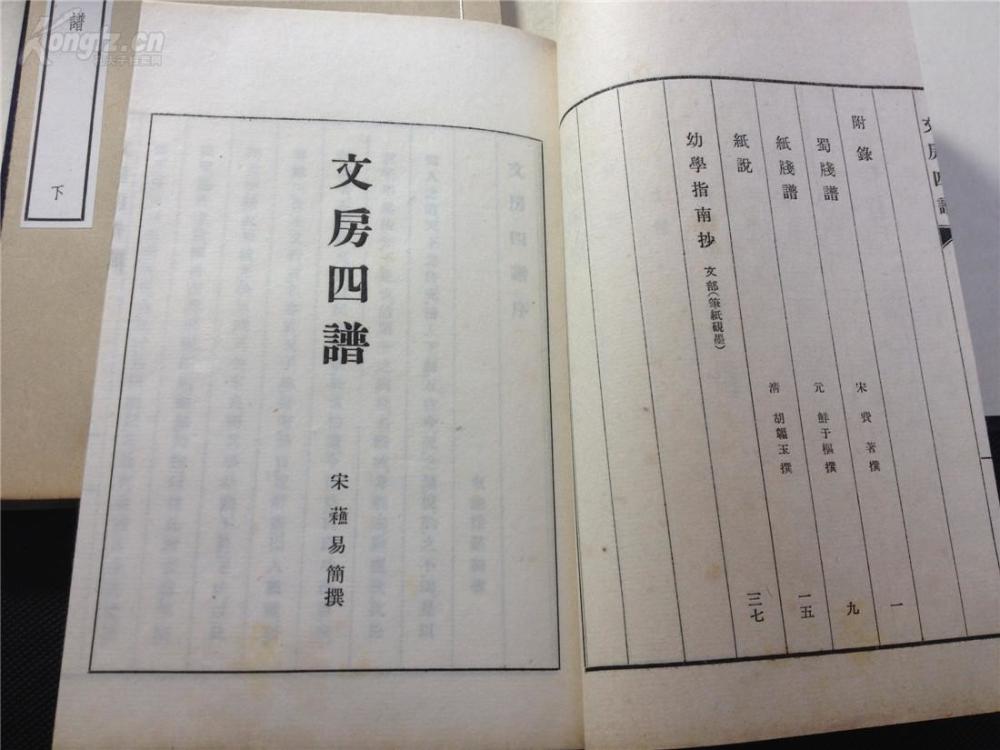 附錄
蜀牋譜 宋 費 著 撰 一
紙牋譜 元 鮮于樞撰 九
紙說 清 胡韞玉撰 一五
幼學指南抄 文部(筆紙硯墨) 三七
文房四譜
宋 蘓易簡撰
文房四譜
譜
下
Kongfz.cn